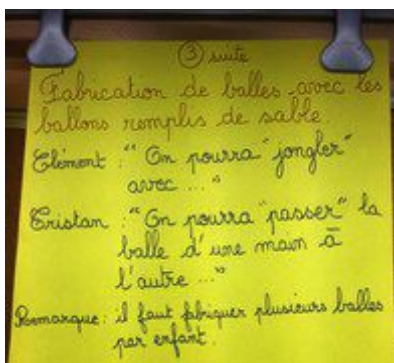 ③ suite
Fabrication de balles avec les
ballons remplis de sable.
Clément : "On pourra "jongler"
avec ..."
Tristan : "On pourra "passer" la
balle d'une main à
l'autre ..."
Remarque : il faut fabriquer plusieurs balles
par enfant.